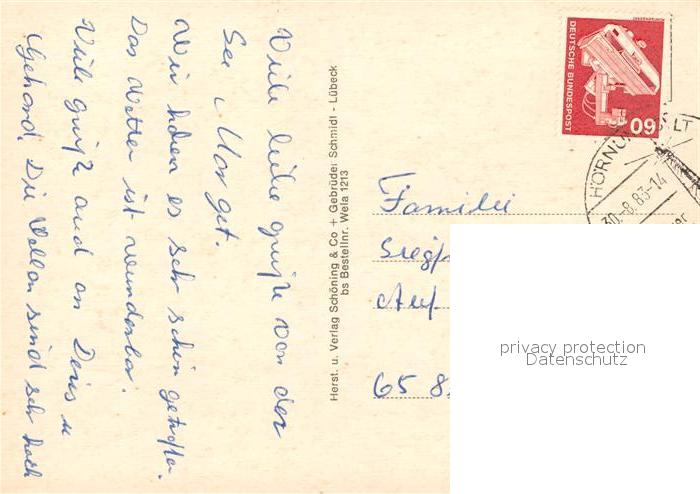 Viele liebe grüße von der
See, Marget.
Wir haben es sehr schön getroffen.
Das Wetter ist wunderbar.
Viele grüße auch an Doris u
Gerhard. Die Wellen sind sehr hoch
Herst. u. Verlag Schöning & Co + Gebrüder Schmidt - Lübeck
bs Bestellnr. Wela 1213
DEUTSCHE BUNDESPOST
60
HÖRNUM SYLT
30.-8.83-14
Familie
Siegf
Auf
65 8
privacy protection
Datenschutz